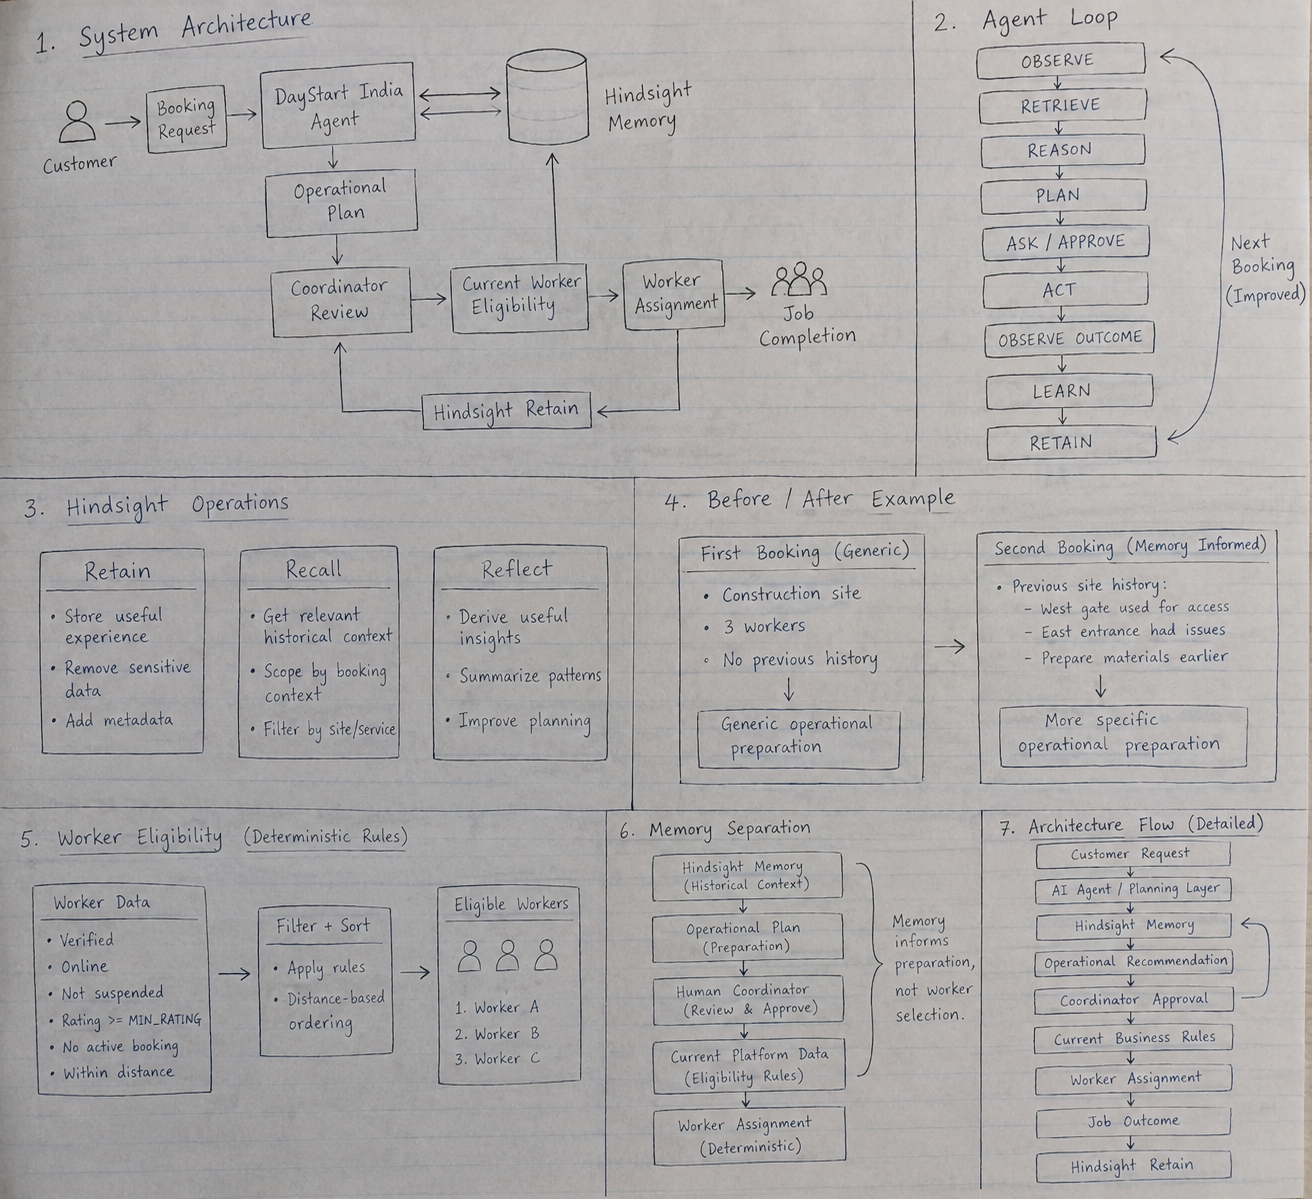 1. System Architecture
Customer
Booking
Request
DayStart India
Agent
Hindsight
Memory
Operational
Plan
Coordinator
Review
Current Worker
Eligibility
Worker
Assignment
Job
Completion
Hindsight Retain
2. Agent Loop
OBSERVE
RETRIEVE
REASON
PLAN
ASK / APPROVE
ACT
OBSERVE OUTCOME
LEARN
RETAIN
Next
Booking
(Improved)
3. Hindsight Operations
Retain
• Store useful
experience
• Remove sensitive
data
• Add metadata
Recall
• Get relevant
historical context
• Scope by booking
context
• Filter by site/service
Reflect
• Derive useful
insights
• Summarize patterns
• Improve planning
4. Before / After Example
First Booking (Generic)
• Construction site
• 3 workers
• No previous history
Generic operational
preparation
Second Booking (Memory Informed)
• Previous site history:
- West gate used for access
- East entrance had issues
- Prepare materials earlier
More specific
operational preparation
5. Worker Eligibility (Deterministic Rules)
Worker Data
• Verified
• Online
• Not suspended
• Rating >= MIN_RATING
• No active booking
• Within distance
Filter + Sort
• Apply rules
• Distance-based
ordering
Eligible Workers
1. Worker A
2. Worker B
3. Worker C
6. Memory Separation
Hindsight Memory
(Historical Context)
Operational Plan
(Preparation)
Human Coordinator
(Review & Approve)
Current Platform Data
(Eligibility Rules)
Worker Assignment
(Deterministic)
Memory
informs
preparation,
not worker
selection.
7. Architecture Flow (Detailed)
Customer Request
AI Agent / Planning Layer
Hindsight Memory
Operational Recommendation
Coordinator Approval
Current Business Rules
Worker Assignment
Job Outcome
Hindsight Retain